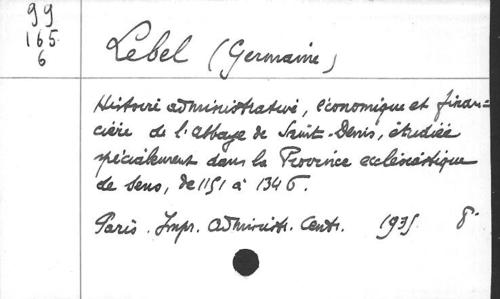 99
165
6
Lebel (Germaine)
Histoire administrative, économique et finan-
cière de l'Abbaye de Saint-Denis, étudiée
spécialement dans la Province ecclésiastique
de Sens, de 1151 à 1346.
Paris. Impr. Administr. Centr. 1935 8°